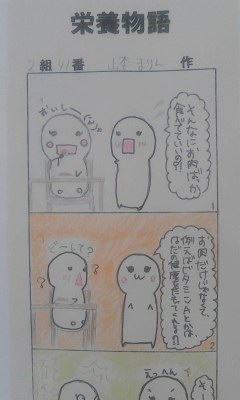 栄養物語
2組 41番 小本 まりん 作
そんなにお肉ばっか
食べてていいの?
おいしー(^o^)
1
お肉だけじゃなくて、
例えばビタミンAとかは、
はだの健康をたもってくれるの!!
どーして?
?
?
2
えっへん